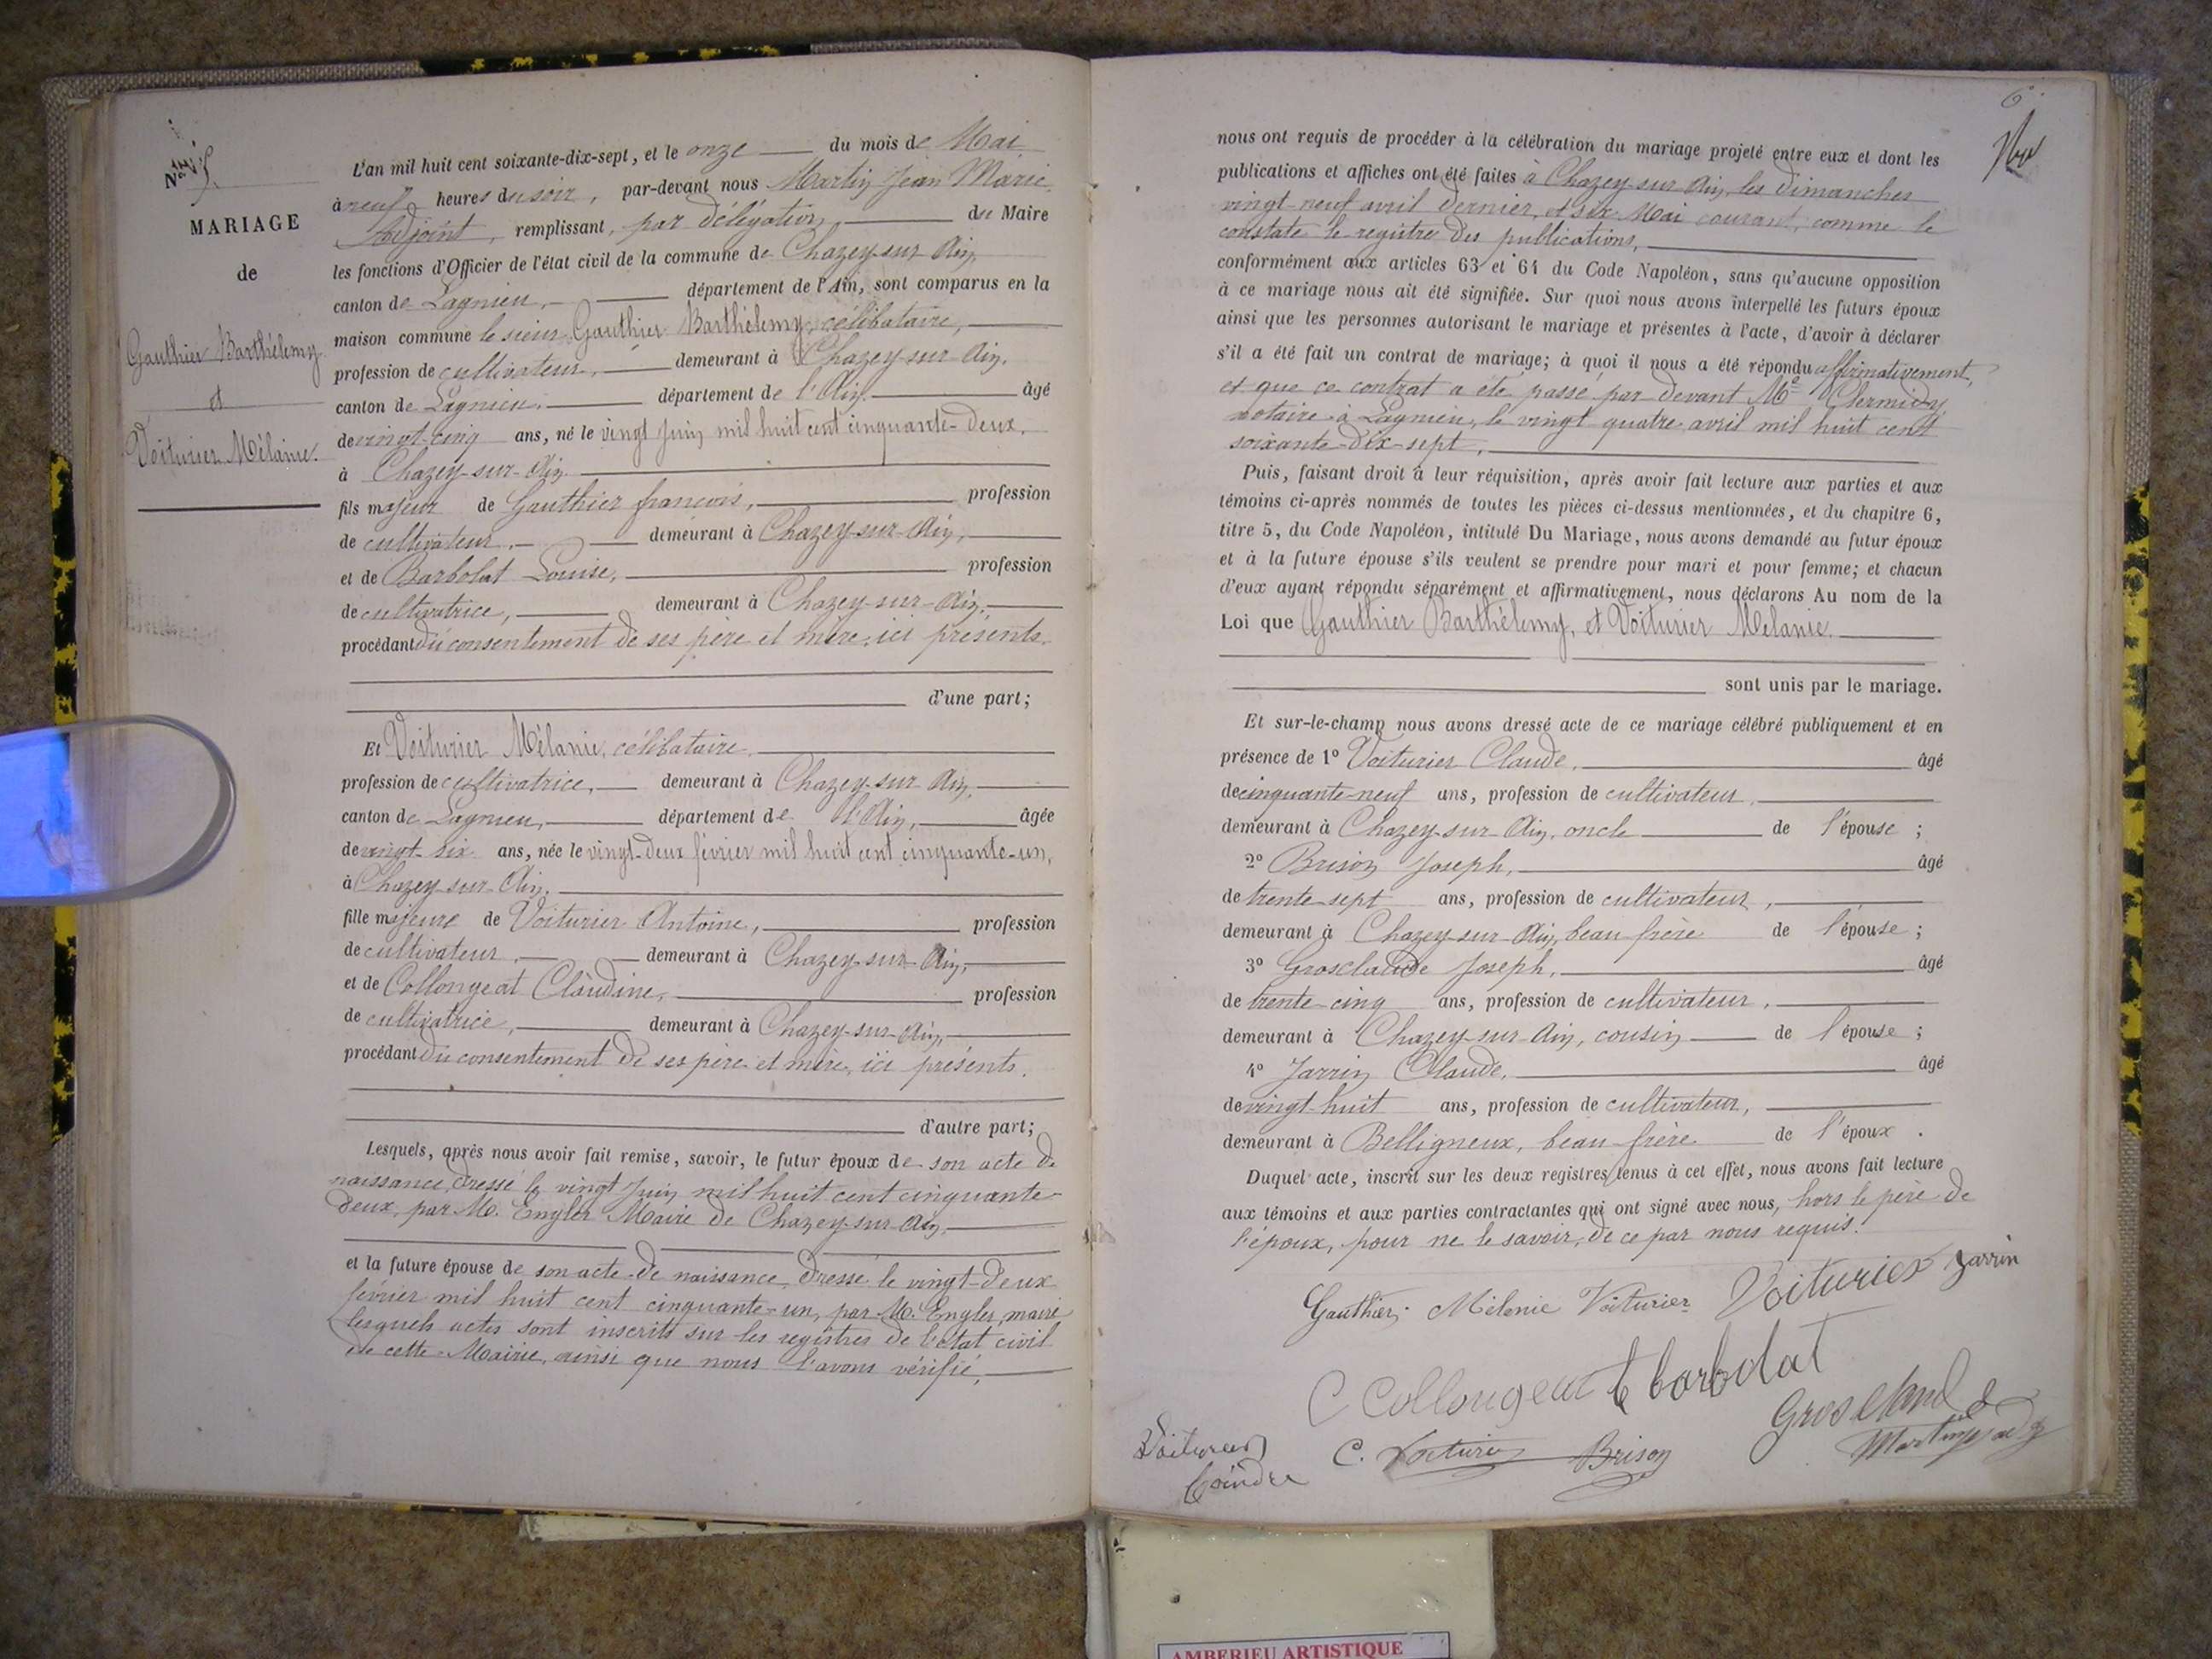 N.º 5.
MARIAGE
de
Gauthier Barthélemy
et
Voiturier Mélanie.
L'an mil huit cent soixante-dix-sept, et le onze du mois de Mai
à neuf heures du soir, par-devant nous Martin Jean Marie
Adjoint, remplissant, par délégation, du Maire
les fonctions d'Officier de l'état civil de la commune de Chazey-sur-Ain
canton de Lagnieu, département de l'Ain, sont comparus en la
maison commune le sieur Gauthier Barthélemy, célibataire,
profession de cultivateur, demeurant à Chazey-sur-Ain.
canton de Lagnieu, département de l'Ain âgé
de vingt-cinq ans, né le vingt Juin mil huit cent cinquante-deux,
à Chazey-sur-Ain
fils majeur de Gauthier françois, profession
de cultivateur, demeurant à Chazey-sur-Ain,
et de Barbolat Louise, profession
de cultivatrice, demeurant à Chazey-sur-Ain,
procédant du consentement de ses père et mère, ici présents.
d'une part;
Et Voiturier Mélanie, célibataire,
profession de cultivatrice, demeurant à Chazey-sur-Ain,
canton de Lagnieu, département de l'Ain, âgée
de vingt-six ans, née le vingt-deux février mil huit cent cinquante-un,
à Chazey-sur-Ain,
fille majeure de Voiturier Antoine, profession
de cultivateur, demeurant à Chazey-sur-Ain,
et de Collongeat Claudine, profession
de cultivatrice, demeurant à Chazey-sur-Ain,
procédant du consentement de ses père et mère, ici présents.
d'autre part;
Lesquels, après nous avoir fait remise, savoir, le futur époux de son acte de
naissance, dressé le vingt Juin mil huit cent cinquante-
deux, par M. Engler Maire de Chazey-sur-Ain,
et la future épouse de son acte de naissance, dressé le vingt-deux
février mil huit cent cinquante-un, par M. Engler, maire
lesquels actes sont inscrits sur les registres de l'état civil
de cette Mairie, ainsi que nous l'avons vérifié,
6
nous ont requis de procéder à la célébration du mariage projeté entre eux et dont les
publications et affiches ont été faites à Chazey-sur-Ain, les dimanches
vingt-neuf avril dernier, et six Mai courant, comme le
constate le registre des publications,
conformément aux articles 63 et 64 du Code Napoléon, sans qu'aucune opposition
à ce mariage nous ait été signifiée. Sur quoi nous avons interpellé les futurs époux
ainsi que les personnes autorisant le mariage et présentes à l'acte, d'avoir à déclarer
s'il a été fait un contrat de mariage; à quoi il nous a été répondu affirmativement,
et que ce contrat a été passé par devant Me Chermidy
notaire à Lagnieu, le vingt quatre avril mil huit cent
soixante-dix-sept,
Puis, faisant droit à leur réquisition, après avoir fait lecture aux parties et aux
témoins ci-après nommés de toutes les pièces ci-dessus mentionnées, et du chapitre 6,
titre 5, du Code Napoléon, intitulé Du Mariage, nous avons demandé au futur époux
et à la future épouse s'ils veulent se prendre pour mari et pour femme; et chacun
d'eux ayant répondu séparément et affirmativement, nous déclarons Au nom de la
Loi que Gauthier Barthélemy, et Voiturier Mélanie
sont unis par le mariage.
Et sur-le-champ nous avons dressé acte de ce mariage célébré publiquement et en
présence de 1º Voiturier Claude, âgé
de cinquante-neuf ans, profession de cultivateur,
demeurant à Chazey-sur-Ain, oncle de l'épouse;
2º Brison Joseph, âgé
de trente-sept ans, profession de cultivateur,
demeurant à Chazey-sur-Ain, beau frère de l'épouse;
3º Grosclaude Joseph, âgé
de trente-cinq ans, profession de cultivateur,
demeurant à Chazey-sur-Ain, cousin de l'épouse;
4º Jarrin Claude, âgé
de vingt-huit ans, profession de cultivateur,
demeurant à Belligneux, beau-frère de l'époux.
Duquel acte, inscrit sur les deux registres tenus à cet effet, nous avons fait lecture
aux témoins et aux parties contractantes qui ont signé avec nous, hors le père de
l'époux, pour ne le savoir, de ce par nous requis.
Gauthier Mélanie Voiturier Voiturier Jarrin
C Collongeat barbolat
Grosclaude
Voiturier C. Voiturier Brison Martin adj
Coindre
AMBERIEU ARTISTIQUE